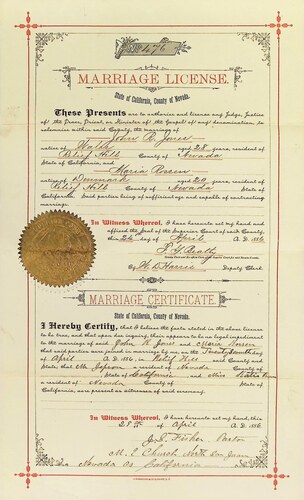 476
MARRIAGE LICENSE.
State of California, County of Nevada.
These Presents are to authorize and license any Judge, Justice
of the Peace, Priest, or Minister of the Gospel of any denomination, to
solemnize within said County, the marriage of
John R. Jones
native of Wales aged 28 years, resident of
Relief Hill County of Nevada
State of California, and
Maria
native of Denmark aged 20 years, resident of
Relief Hill County of Nevada
State of California. Said parties being of sufficient age and capable of contracting
marriage.
In Witness Whereof, I have hereunto set my hand and
affixed the Seal of the Superior Court of said County, this
day of April A.D. 1886
By Deputy Clerk
MARRIAGE CERTIFICATE.
State of California, County of Nevada.
I Hereby Certify, that I believe the facts stated in the above license
to be true, and that upon due inquiry there appears to be no legal impediment
to the marriage of said John R Jones and Maria
that said parties were joined in marriage by me on the day
of April A.D. 1886, in Relief Hill County of
and State; that a resident of Nevada County of
State of California and Miss
a resident of Nevada County of State of
California, were present as witnesses of said ceremony.
In Witness Whereof, I have hereunto set my hand, this
28th of April A.D. 1886.
J. S. Fisher Pastor
M. E. Church North San Juan
Nevada Co California